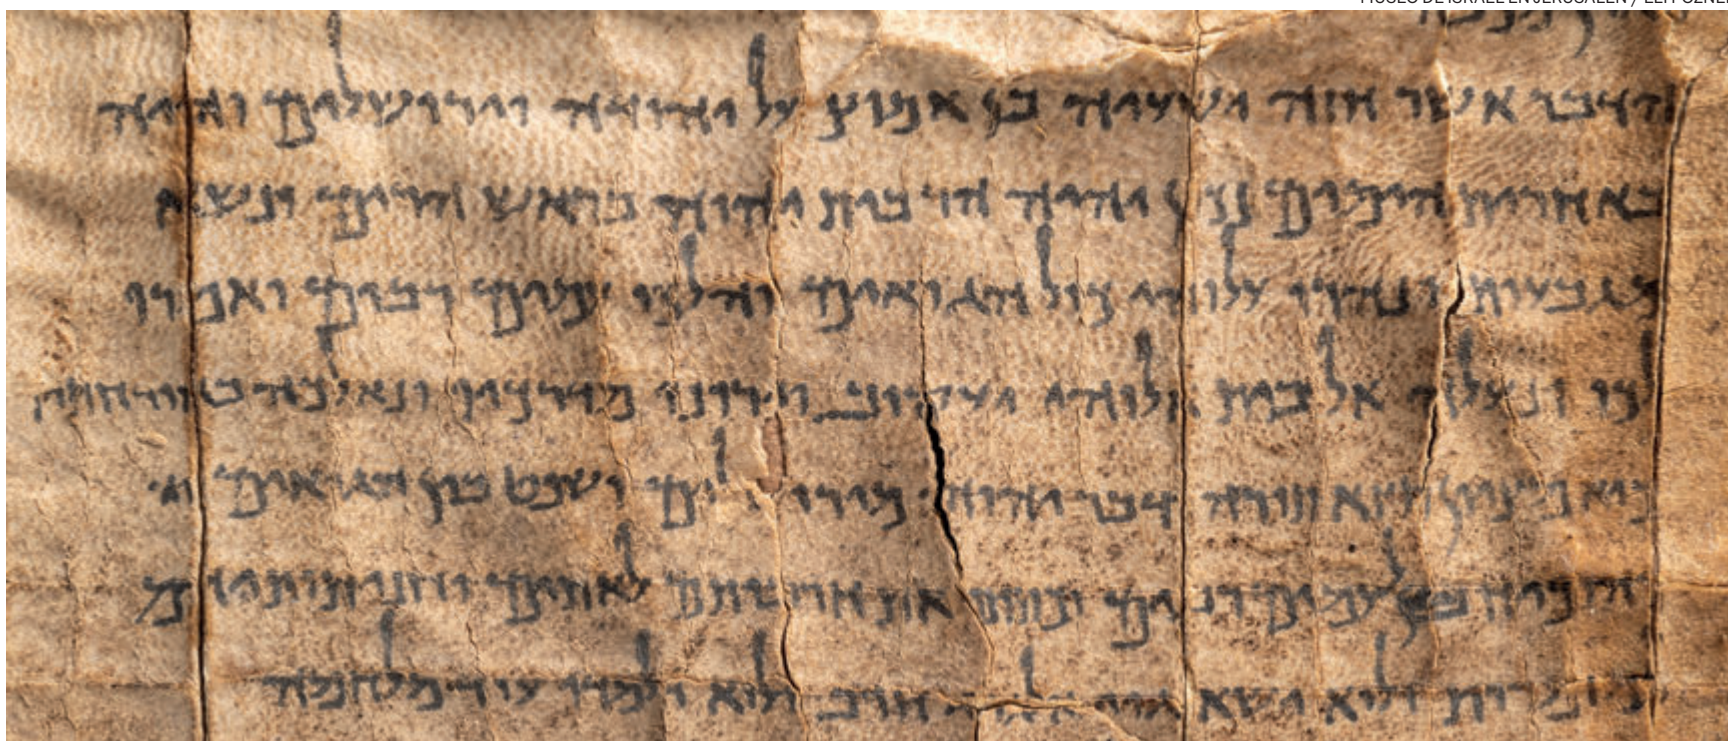 MUSEO DE ISRAEL EN JERUSALÉN /
הדבר אשר חזה ישעיה בן אמוץ על יהודה וירושלים והיה
באחרית הימים נכון יהיה הר בית יהוה בראש הרים ונשא
מגבעות ונהרו עלוהי כול הגואים והלכו עמים רבים ואמרו
לכו ונעלה אל בית אלוהי יעקוב וירונו מדרכיו ונאלכה באורחותיו
כיא מציון תצא תורה ודבר יהוה מירושלים ושפט בין הגואים
לעמים רבים את חרבותם לאתים וחניתותיהם
ולוא ישא גוי חרב ולוא ילמדו עוד מלחמה